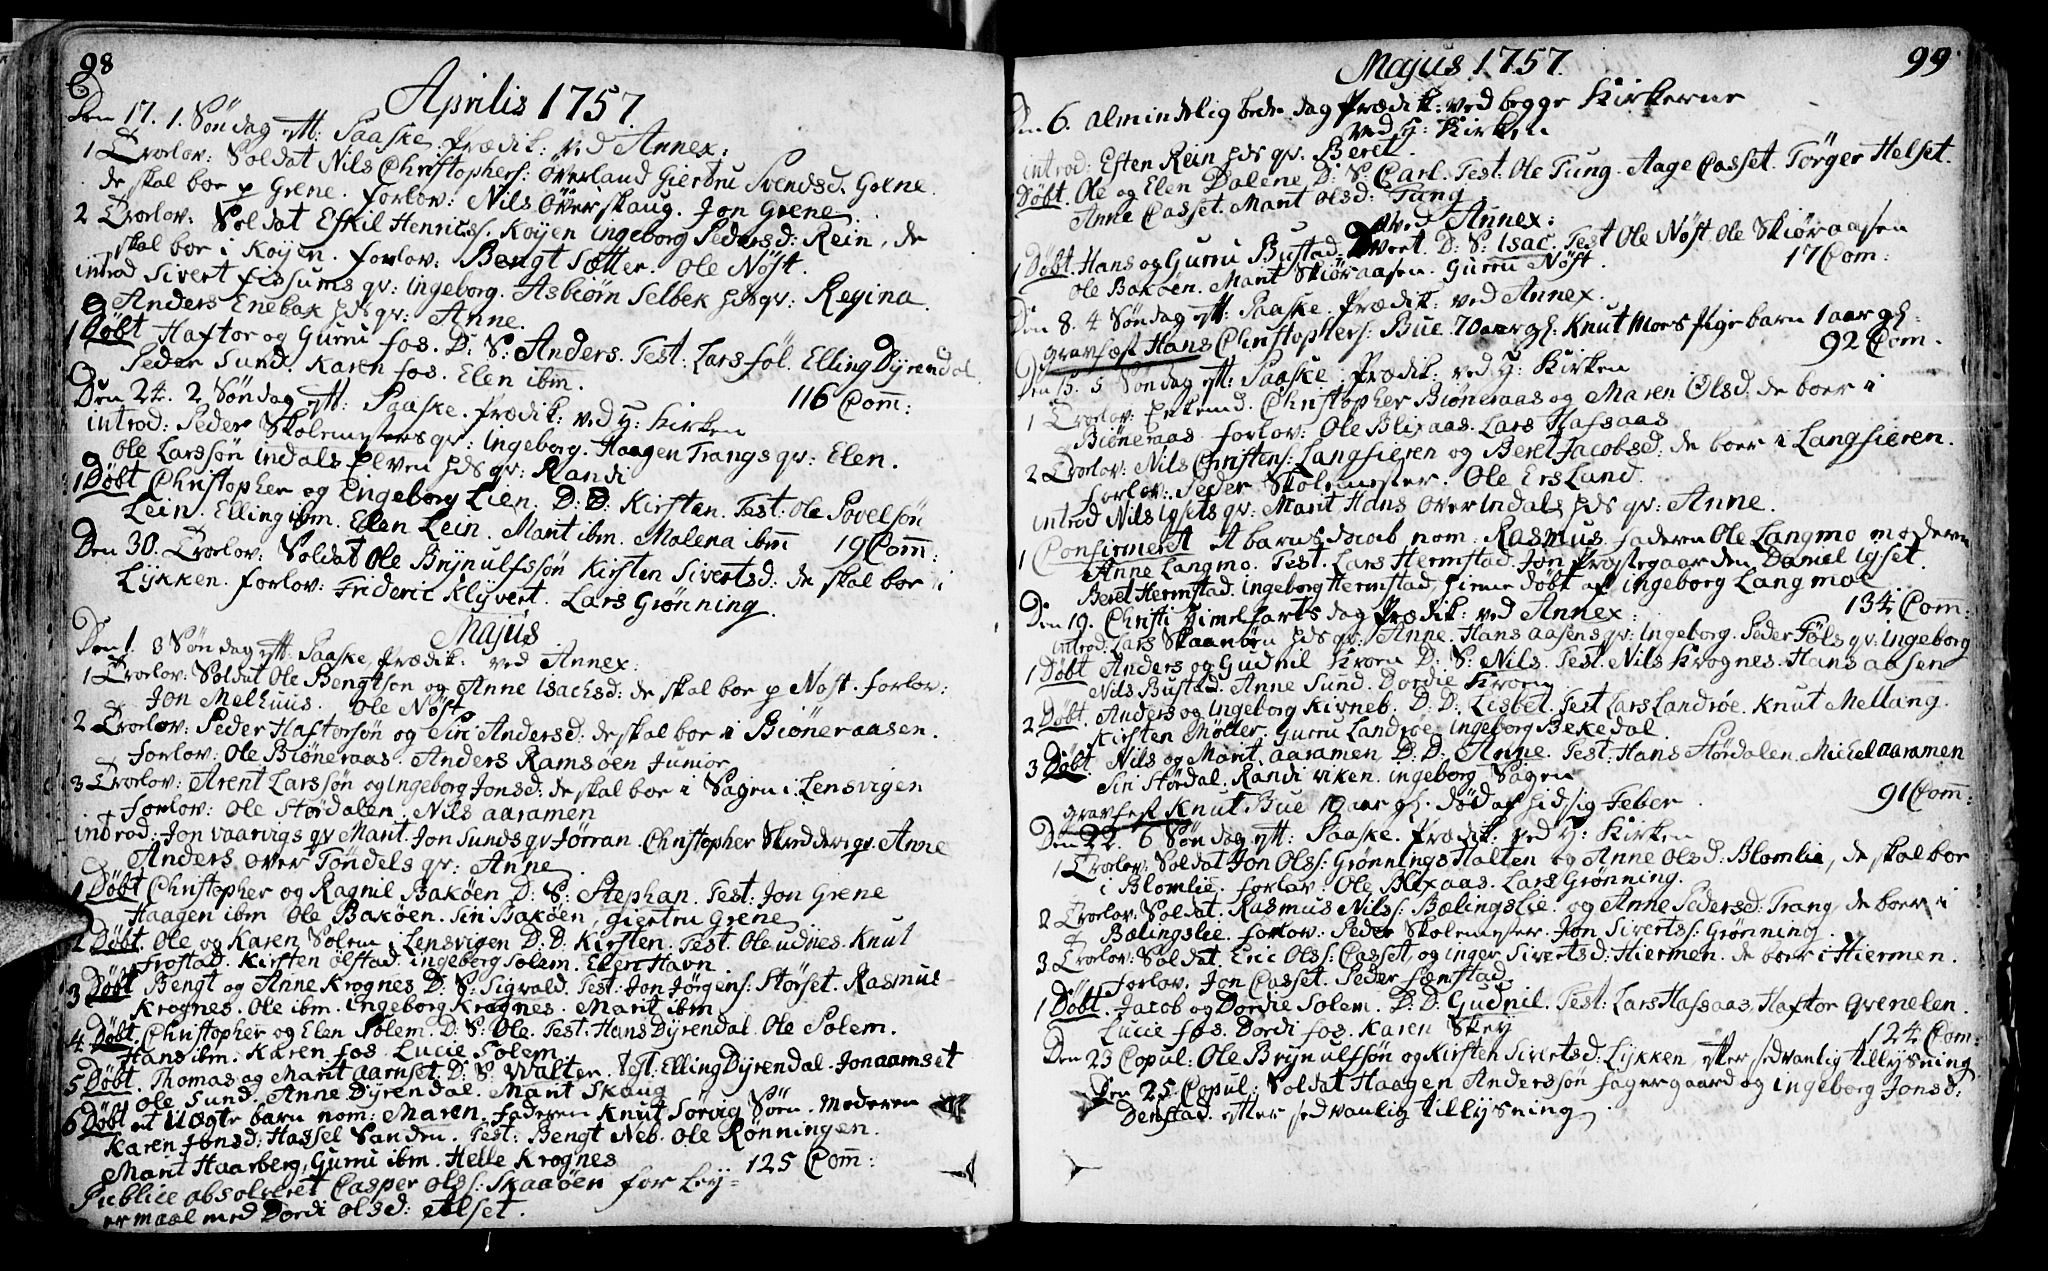 98
Aprilis 1757.
Den 17. 1. Søndag eft: Paaske Prædik: ved Annex:
1 Trolov: Soldat Nils Christophers: Överland Giertru Svendsd. Grene
de skal boe p Grene. forlov: Nils Överskaug. Jon Grene
2 Trolov: Soldat Eskil Henrics: Koÿen ingeborg Pedersd: Rein, de
skal boe i Koÿen. forlov: Bengt Sætter. Ole Nöst.
introd Sivert Fissums qv: ingeborg. Asbiörn Selbek hds qv: Regina
Anders Enebak hds qv: Anne.
1 Döbt Haftor og Gurru fos. D: S: Anders. Test. Lars föl. Elling Dÿrendal
Peder Sund. Karen fos. Elen ibm.
Den 24. 2 Söndag eft: Paaske. Prædik: ved H: Kirken 116 Com:
introd: Peder Skolemesters qv: ingeborg. Haagen Trangs qv: Elen.
Ole Larssön indals Elven hds qv: Randi
1 Döbt Christopher og Engeborg Lien. D: D: Kirsten. Test. Ole Povelsön
Lein. Elling ibm. Elen Lein. Marit ibm. Malena ibm 19 Com:
Den 30. Trolov: Soldat Ole Brÿnulfssön Kirsten Sivertsd: de skal boe i
Lÿkken. forlov: Frideric Klÿvert. Lars Grönning.
Majus
Den 1. 3 Söndag eft: Paaske, Prædik: ved Annex:
1 Trolov: Soldat Ole Bengtson og Anne Isachsd: de skal boe p Nöst. forlov:
Jon Melhuus. Ole Nöst
2 Trolov: Peder Haftorsön og Siri Andersd: de skal boe i Biöneraasen.
forlov: Ole Biöneraas. Anders Ramsöen Junior
3 Trolov: Arent Larssön og Ingeborg Jonsd: de skal boe i Sagen i Lensvigen
forlov: Ole Stördalen. Nils Aaramen
introd: Jon vaarvigs qv Marit. Jon Sunds qv Jörran. Christopher Skredders qv. Anne
Anders over Töndels qv: Anne
1 Döbt Christopher og Ragnil Baköen D: S: Stephan. Test: Jon Grene
Haagen ibm Ole Baköen. Siri Baköen, giertru Grene
2 Döbt. Ole og Karen Solem i Lensvigen D: D: Kirsten. Test. Ole udnes. Knut
Frostad. Kirsten ölstad. ingeborg Solem. Elen Havn
3 Döbt Bengt og Anne Krognes D: S: Sigvald. Test: Jon Jörgens: Störset. Rasmus
Krognes. Ole ibm. ingeborg Krognes. Marit ibm
4 Döbt. Christopher og Elen Solem D: S: Ole. Test: Hans Dÿrendal. Ole Solem.
Hans ibm. Karen fos. Lucie Solem
5 Döbt. Thomas og Marit aamset D: S: Walter. Test. Elling Dÿrendal. Jon aamset
Ole Sund. Anne Dÿrendal. Marit Skaug
6 Döbt et uægte barn nom: Maren. Faderen Knut Sörvig Sön. Moderen
Karen Jonsd: Hassel Sanden. Test: Bengt Neb. Ole Rönningen.
Marit Haarberg, Gurru ibm. Helle Krognes 125 Com:
Publice absolveret Casper Ols: Skaaöen for Leÿ=
ermaal med Dordi Olsd: Alset.
99
Majus 1757.
Den 6. almindelig bede dag Prædik: ved begge Kirkerne
ved H: Kirken
introd: Esten Rein hds qv. Beret.
Döbt. Ole og Elen Dalene D: S: Carl. Test: Ole Tung. Aage Casset. Törger Helset.
Anne Casset. Marit Olsd: Tung
ved Annex:
1 Döbt. Hans og Gurru Bustad D: S: Isac. Test Ole Nöst. Ole Skiöraasen
Ole Baköen. Marit Skiöraasen. Gurru Nöst. 17 Com:
Den 8. 4 Söndag eft: Paaske. Prædik: ved Annex.
gravfæst Hans Christophers: Bue. 70 aar gl: Knut Moes pige barn 1 aar gl:
92 Com.
Den 15. 5 Söndag eft: Paaske. Prædik: ved H: Kirken
1 Trolov: Enkemd. Christopher Biöneraas og Maren Olsd: de boer i
Biöneraas forlov: Ole Blixaas. Lars Hafsaas
2 Trolov: Nils Christens: Langlieren og Beret Jacobsd: de boer i Langlieren.
forlov: Peder Skolemester. Ole Ersland.
introd Nils igsets qv: Marit Hans Over indals hds qv: Anne.
1 Confirmeret et barns daab nom: Rasmus. faderen Ole Langmo moderen
Anne Langmo. Test. Lars Hermstad. Jon Prostegaarden Daniel igset.
Beret Hermstad. ingeborg Hermstad, hieme döbt af ingeborg Langmoe
134 Com:
Den 19. Christi Himelfarts dag Prædik: ved Annex:
introd: Lars Skaanöen hds qv: Anne. Hans aasens qv: Ingeborg. Peder Föls qv: ingeborg
1 Döbt Anders og Gudnil Kroen D: S: Nils. Test: Nils Krognes. Hans aasen
Nils Bustad. Anne Sund. Dordie Kroen
2 Döbt. Anders og Ingeborg Kirneb. D: D: Lisbet. Test Lars Landröe. Knut Mellang.
Kirsten Möller. Gurru Landröe. ingeborg Bekedal.
3 Döbt. Nils og Marit aaramen D: D: Anne. Test: Hans Stördalen. Michel aaramen
Siri Stördal. Randi viken. ingeborg Sagen
gravfest Knut Bue 19 aar gl: död af hidsig Feber 91 Com:
Den 22. 6 Söndag eft: Paaske. Prædik: ved H: Kirken
1 Trolov: Soldat Jon Ols: Grönnings Halten og Anne Olsd: Blomlie, de skal boe
i Blomlie. forlov: Ole Blixaas. Lars Grönning.
2 Trolov: Soldat. Rasmus Nils: Bælingslie. og Anne Pedersd: Trang, de boer i
Bælingslie. forlov: Peder Skolemester. Jon Siverts: Grönning.
3. Trolov: Soldat. Eric Ols: Casset og inger Sivertsd: Hiermen. de boer i Hiermen.
forlov. Jon Casset. Peder Fænstad
1 Döbt. Jacob og Dordie Solem. D: D: Gudnil. Test: Lars Hafsaas, Haftor Grenelen.
Lucie fos. Dordi fos. Karen Skeÿ 124 Com:
Den 23 Copul: Ole Brÿnulfssön og Kirsten Sivertsd: Lÿkken, efter sedvanlig tillÿsning
Den 25 Copul: Soldat Haagen Anderssön fagergaard og ingeborg Jonsd:
Denstad. efter sedvanlig tillÿsning